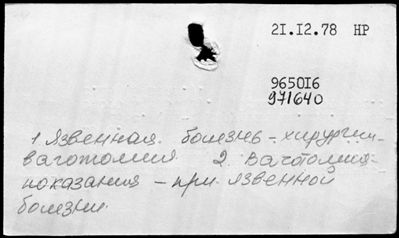 21.12.78 НР
965016
971640
1 Язвенная болезнь - хирургия -
ваготомия 2. Ваготомия -
показания - при язвенной
болезни.